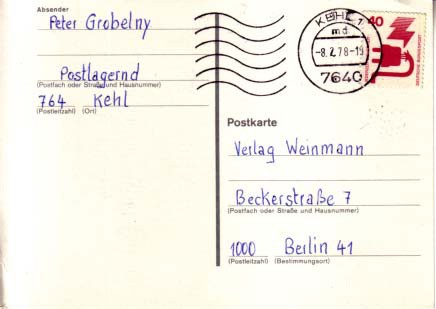 Absender
Peter Grobelny
Postlagernd
(Postfach oder Straße und Hausnummer)
764 Kehl
(Postleitzahl) (Ort)
KEHL 1
md
-8.2.78-19
7640
40
DEUTSCHE BUNDESPOST
Postkarte
Verlag Weinmann
Beckerstraße 7
(Postfach oder Straße und Hausnummer)
1000 Berlin 41
(Postleitzahl) (Bestimmungsort)